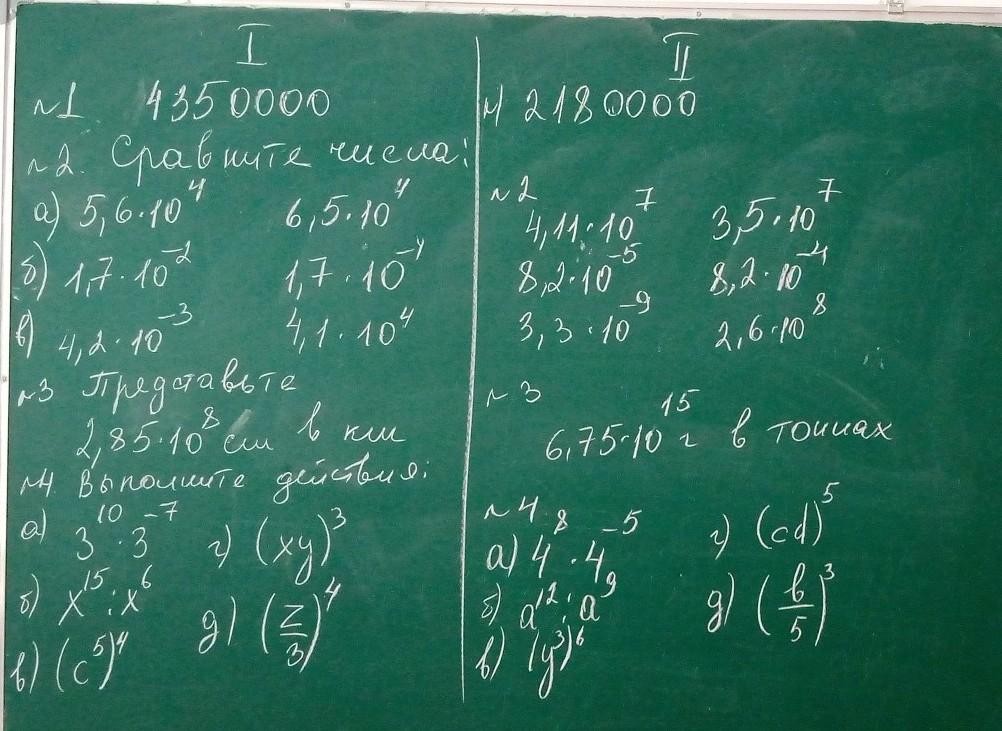 I
№1 4350000
№2. Сравните числа:
а) 5,6·10⁴ 6,5·10⁴
б) 1,7·10⁻² 1,7·10⁻⁴
в) 4,2·10⁻³ 4,1·10⁴
№3 Представьте
2,85·10⁸ см в км
№4. Выполните действия:
а) 3¹⁰·3⁻⁷ г) (xy)³
б) x¹⁵:x⁶ д) (z/3)⁴
в) (c⁵)⁴
II
№1 2180000
№2
4,11·10⁷ 3,5·10⁷
8,2·10⁻⁵ 8,2·10⁻⁴
3,3·10⁻⁹ 2,6·10⁸
№3
6,75·10¹⁵ г в тоннах
№4
а) 4⁸·4⁻⁵ г) (cd)⁵
б) a¹²:a⁹ д) (b/5)³
в) (y³)⁶